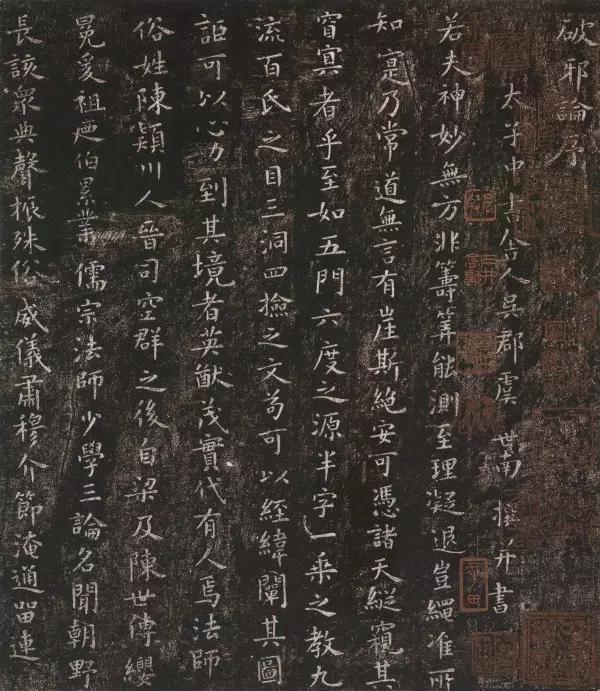 破邪論序
太子中書舎人吳郡虞世南撰并書
若夫神妙無方非籌筭能測至理凝退豈繩准所
知寔乃常道無言有崖斯絕安可憑諸天縱窺其
窅冥者乎至如五門六度之源半字一乗之教九
流百氏之目三洞四撿之文茍可以經緯闡其圖
詎可以心力到其境者英猷茂實代有人焉法師
俗姓陳潁川人晉司空群之後自梁及陳世傳纓
冕爰祖伯累業儒宗法師少學三論名聞朝野
長該眾典聲振殊俗威儀肅穆介節淹通留連